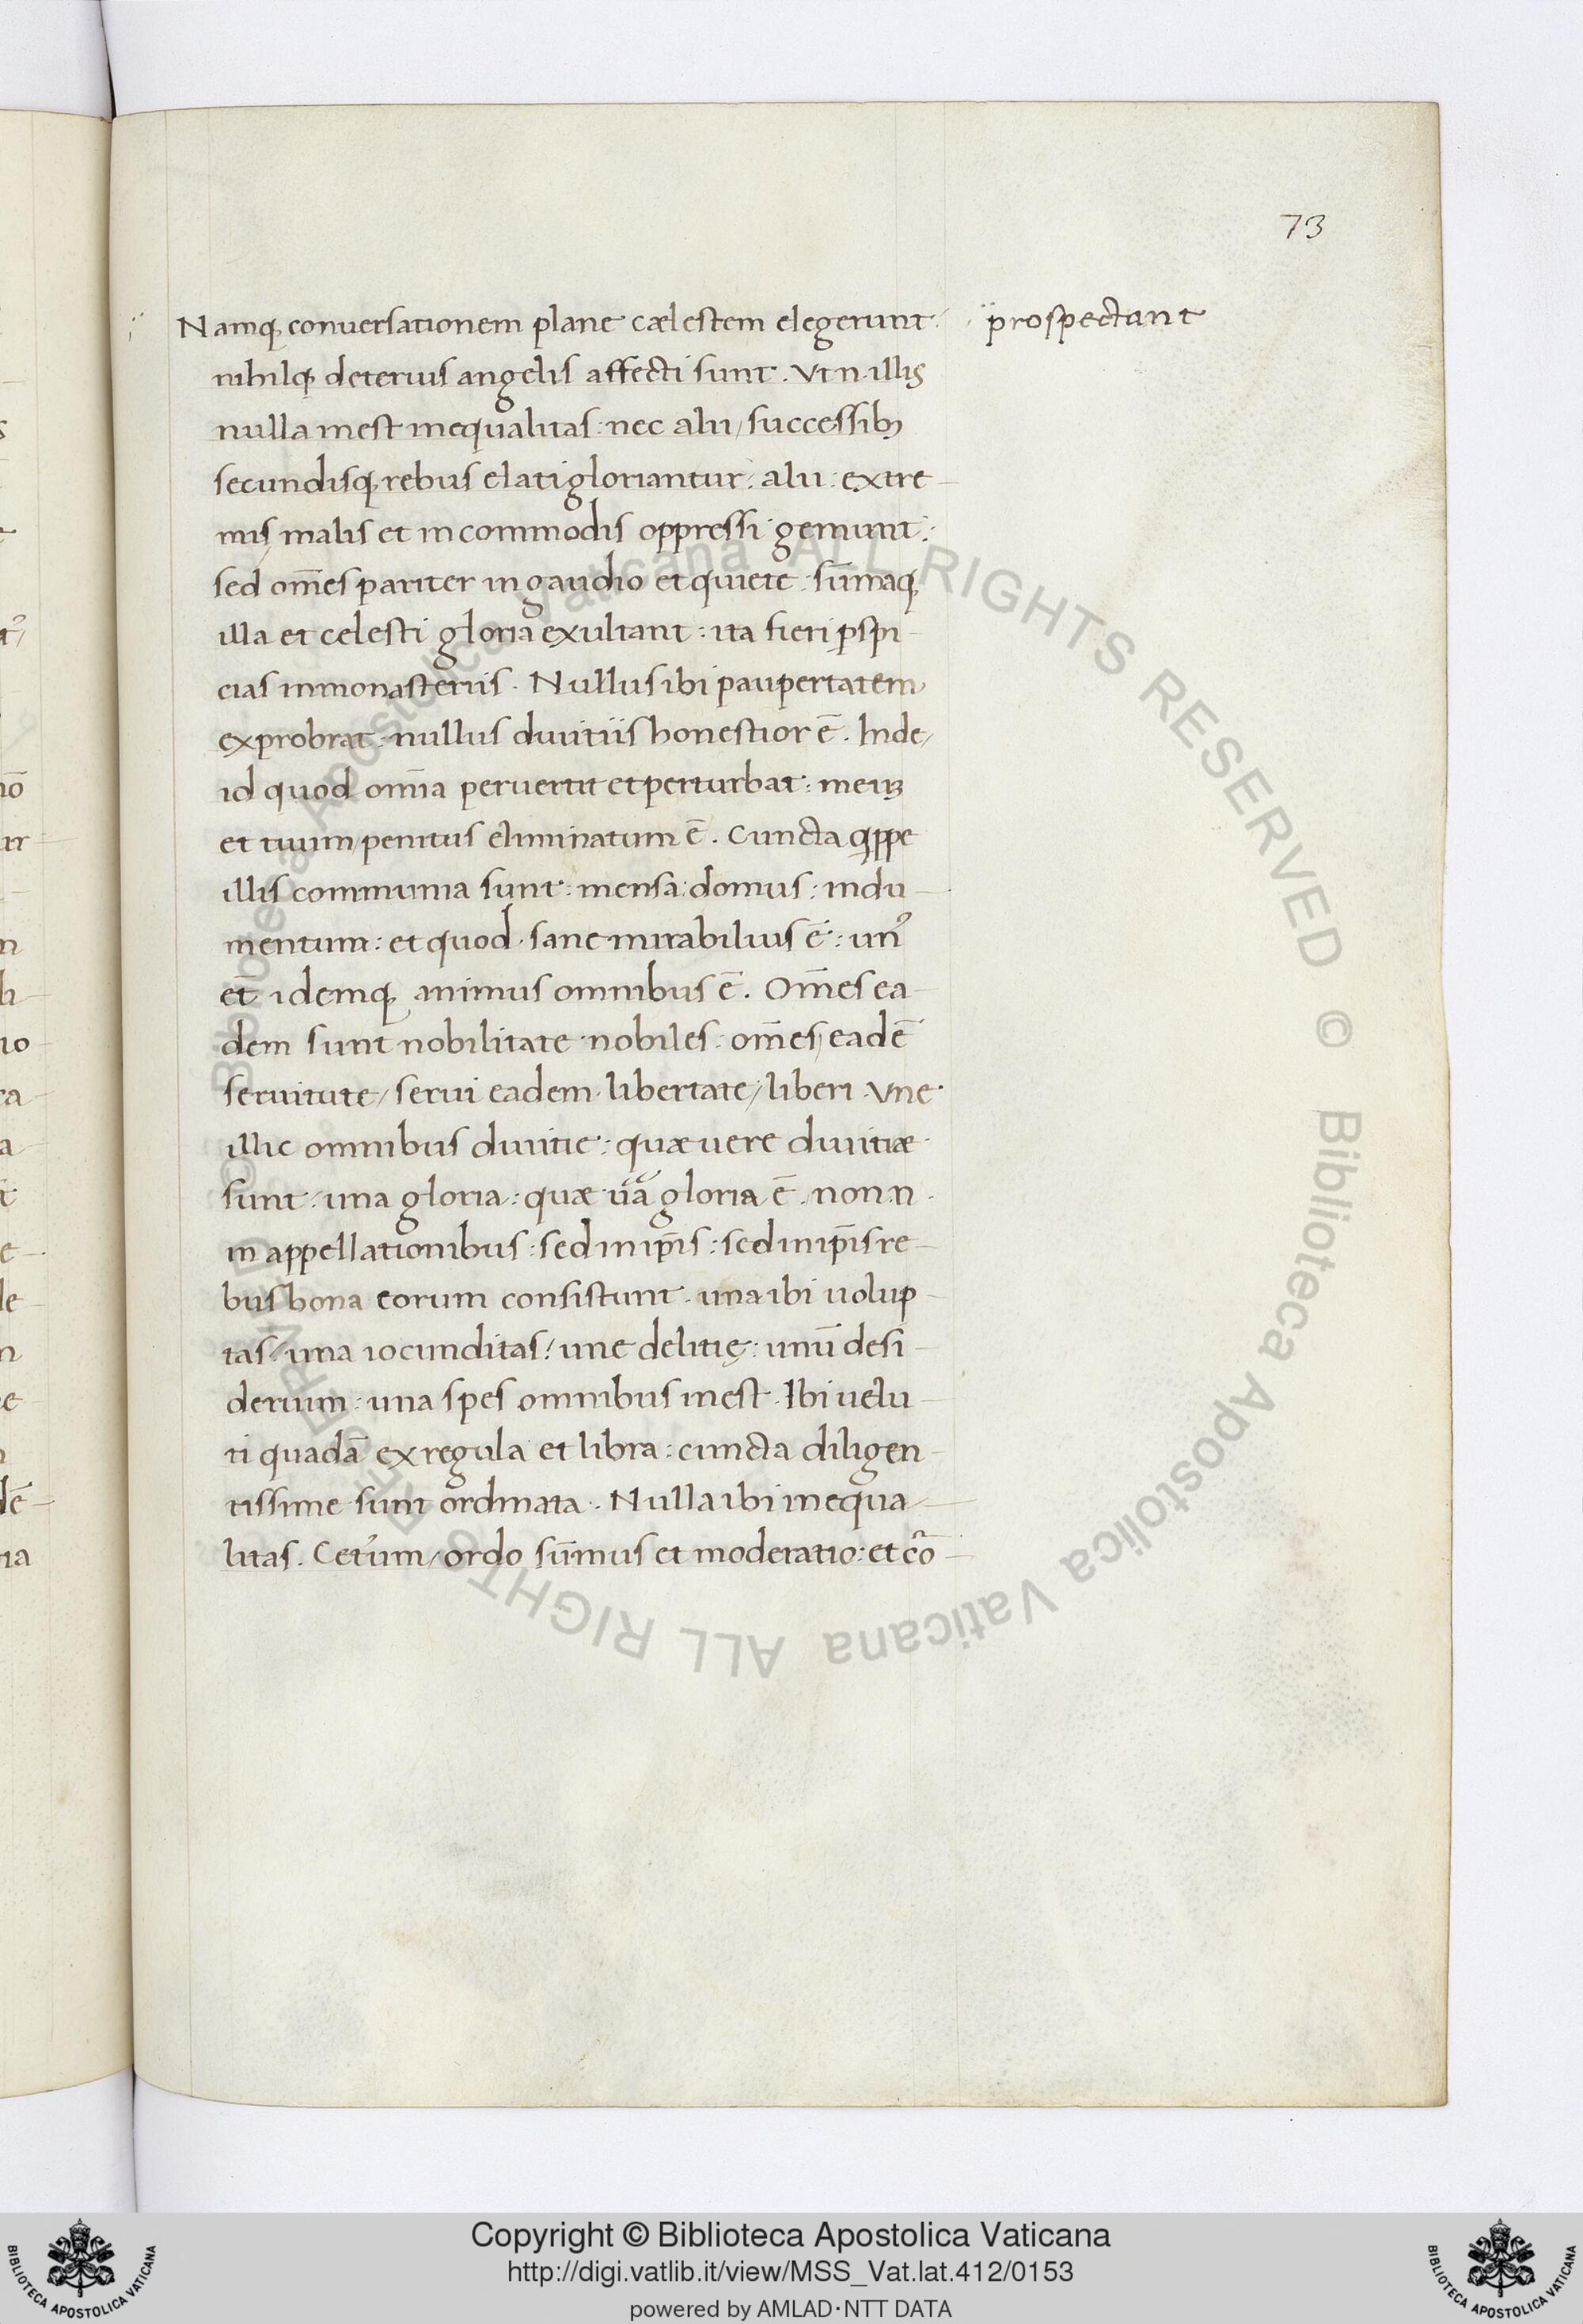 73
Namq; conuersationem plane cælestem elegerunt. prospectant
nihilq; deterius angelis affecti sunt. Vt n. illis
nulla inest inequalitas: nec alii / successib;
secundisq; rebus elati gloriantur: alii: extre
mis malis et incommodis oppressi gemunt:
sed om̄es pariter in gaudio et quiete. sūmaq;
illa et celesti gloria exultant: ita fieri ꝑspi
cias in monasteriis. Nullus ibi paupertatem
exprobrat: nullus diuitiis honestior ē. Inde /
id quod om̄ia peruertit et perturbat: meuꝫ
et tuum / penitus eliminatum ē. Cuncta q̇ppe
illis communia sunt: mensa: domus: indu
mentum: et quod. sane mirabilius ē: un᾿
et̄ idemq; animus omnibus ē. Om̄es ea
dem sunt nobilitate nobiles: om̄es, eadē
seruitute / serui eadem. libertate / liberi. Vne
illic omnibus diuitie: quæ uere diuitiæ
sunt / una gloria: quæ ūa gloria ē. non n.
in appellationibus: sed in ip̄is: sed in ip̄is re
bus bona eorum consistunt. una ibi uolup
tas / una iocunditas: une delitię: unū desi
derium: una spes omnibus inest. Ibi uelu
ti quadā ex regula et libra: cuncta diligen
tissime sunt ordinata. Nulla ibi inequa
litas. Cet᾿um / ordo sūmus et moderatio: et cō
© Biblioteca Apostolica Vaticana ALL RIGHTS RESERVED © Biblioteca Apostolica Vaticana ALL RIGHTS RESERVED
Copyright © Biblioteca Apostolica Vaticana
http://digi.vatlib.it/view/MSS_Vat.lat.412/0153
powered by AMLAD·NTT DATA
BIBLIOTECA APOSTOLICA VATICANA
BIBLIOTECA APOSTOLICA VATICANA